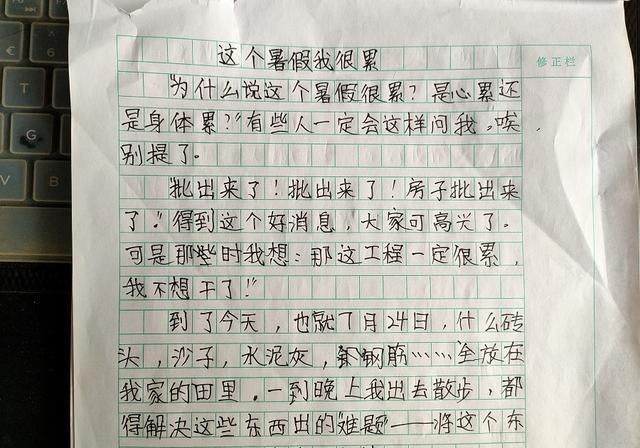 修正栏
这个暑假我很累
"为什么说这个暑假很累？是心累还
是身体累？"有些人一定会这样问我。唉，
别提了。
"批出来了！批出来了！房子批出来
了。"得到这个好消息，大家可高兴了。
可是那些时我想：那这工程一定很累，
我不想干了！"
到了今天，也就7月24日，什么砖
头，沙子，水泥灰，钢筋……全放在
我家的田里。一到晚上我出去散步，都
得解决这些东西出的"难题"——将这个东
T
G
V
B
6
€